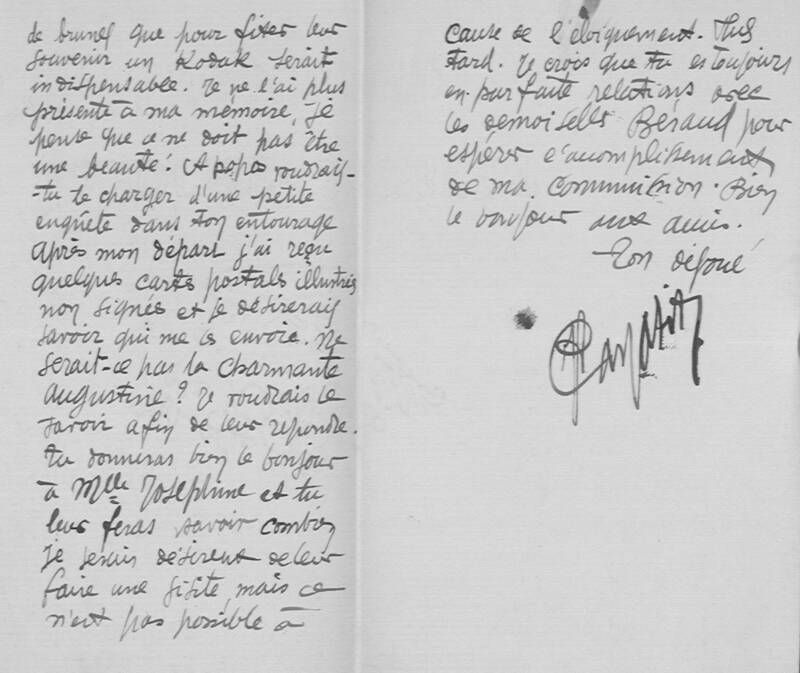 de brunes que pour fixer leur
souvenir un Kodak serait
indispensable. Je ne l'ai plus
présente à ma mémoire, je
pense que ce ne doit pas être
une beauté! A popos voudrais-
-tu te charger d'une petite
enquête dans ton entourage
Après mon départ j'ai reçu
quelques cartes postals illustrés
non signées et je désirerais
savoir qui me les envoie. Ne
serait-ce pas la charmante
Augustine ? Je voudrais le
savoir afin de leur repondre.
Tu donneras bien le bonjour
à Mlle Josephine et tu
leur feras savoir combien
je serais désireux de leur
faire une visite, mais ce
n'est pas possible à
cause de l'éloignement. Plus
tard. Je crois que tu es toujours
en parfaite relations avec
les demoiselles Béraud pour
espérer l'acomplissement
de ma commission. Bien
le bonjour aux amis.
Ton dévoué